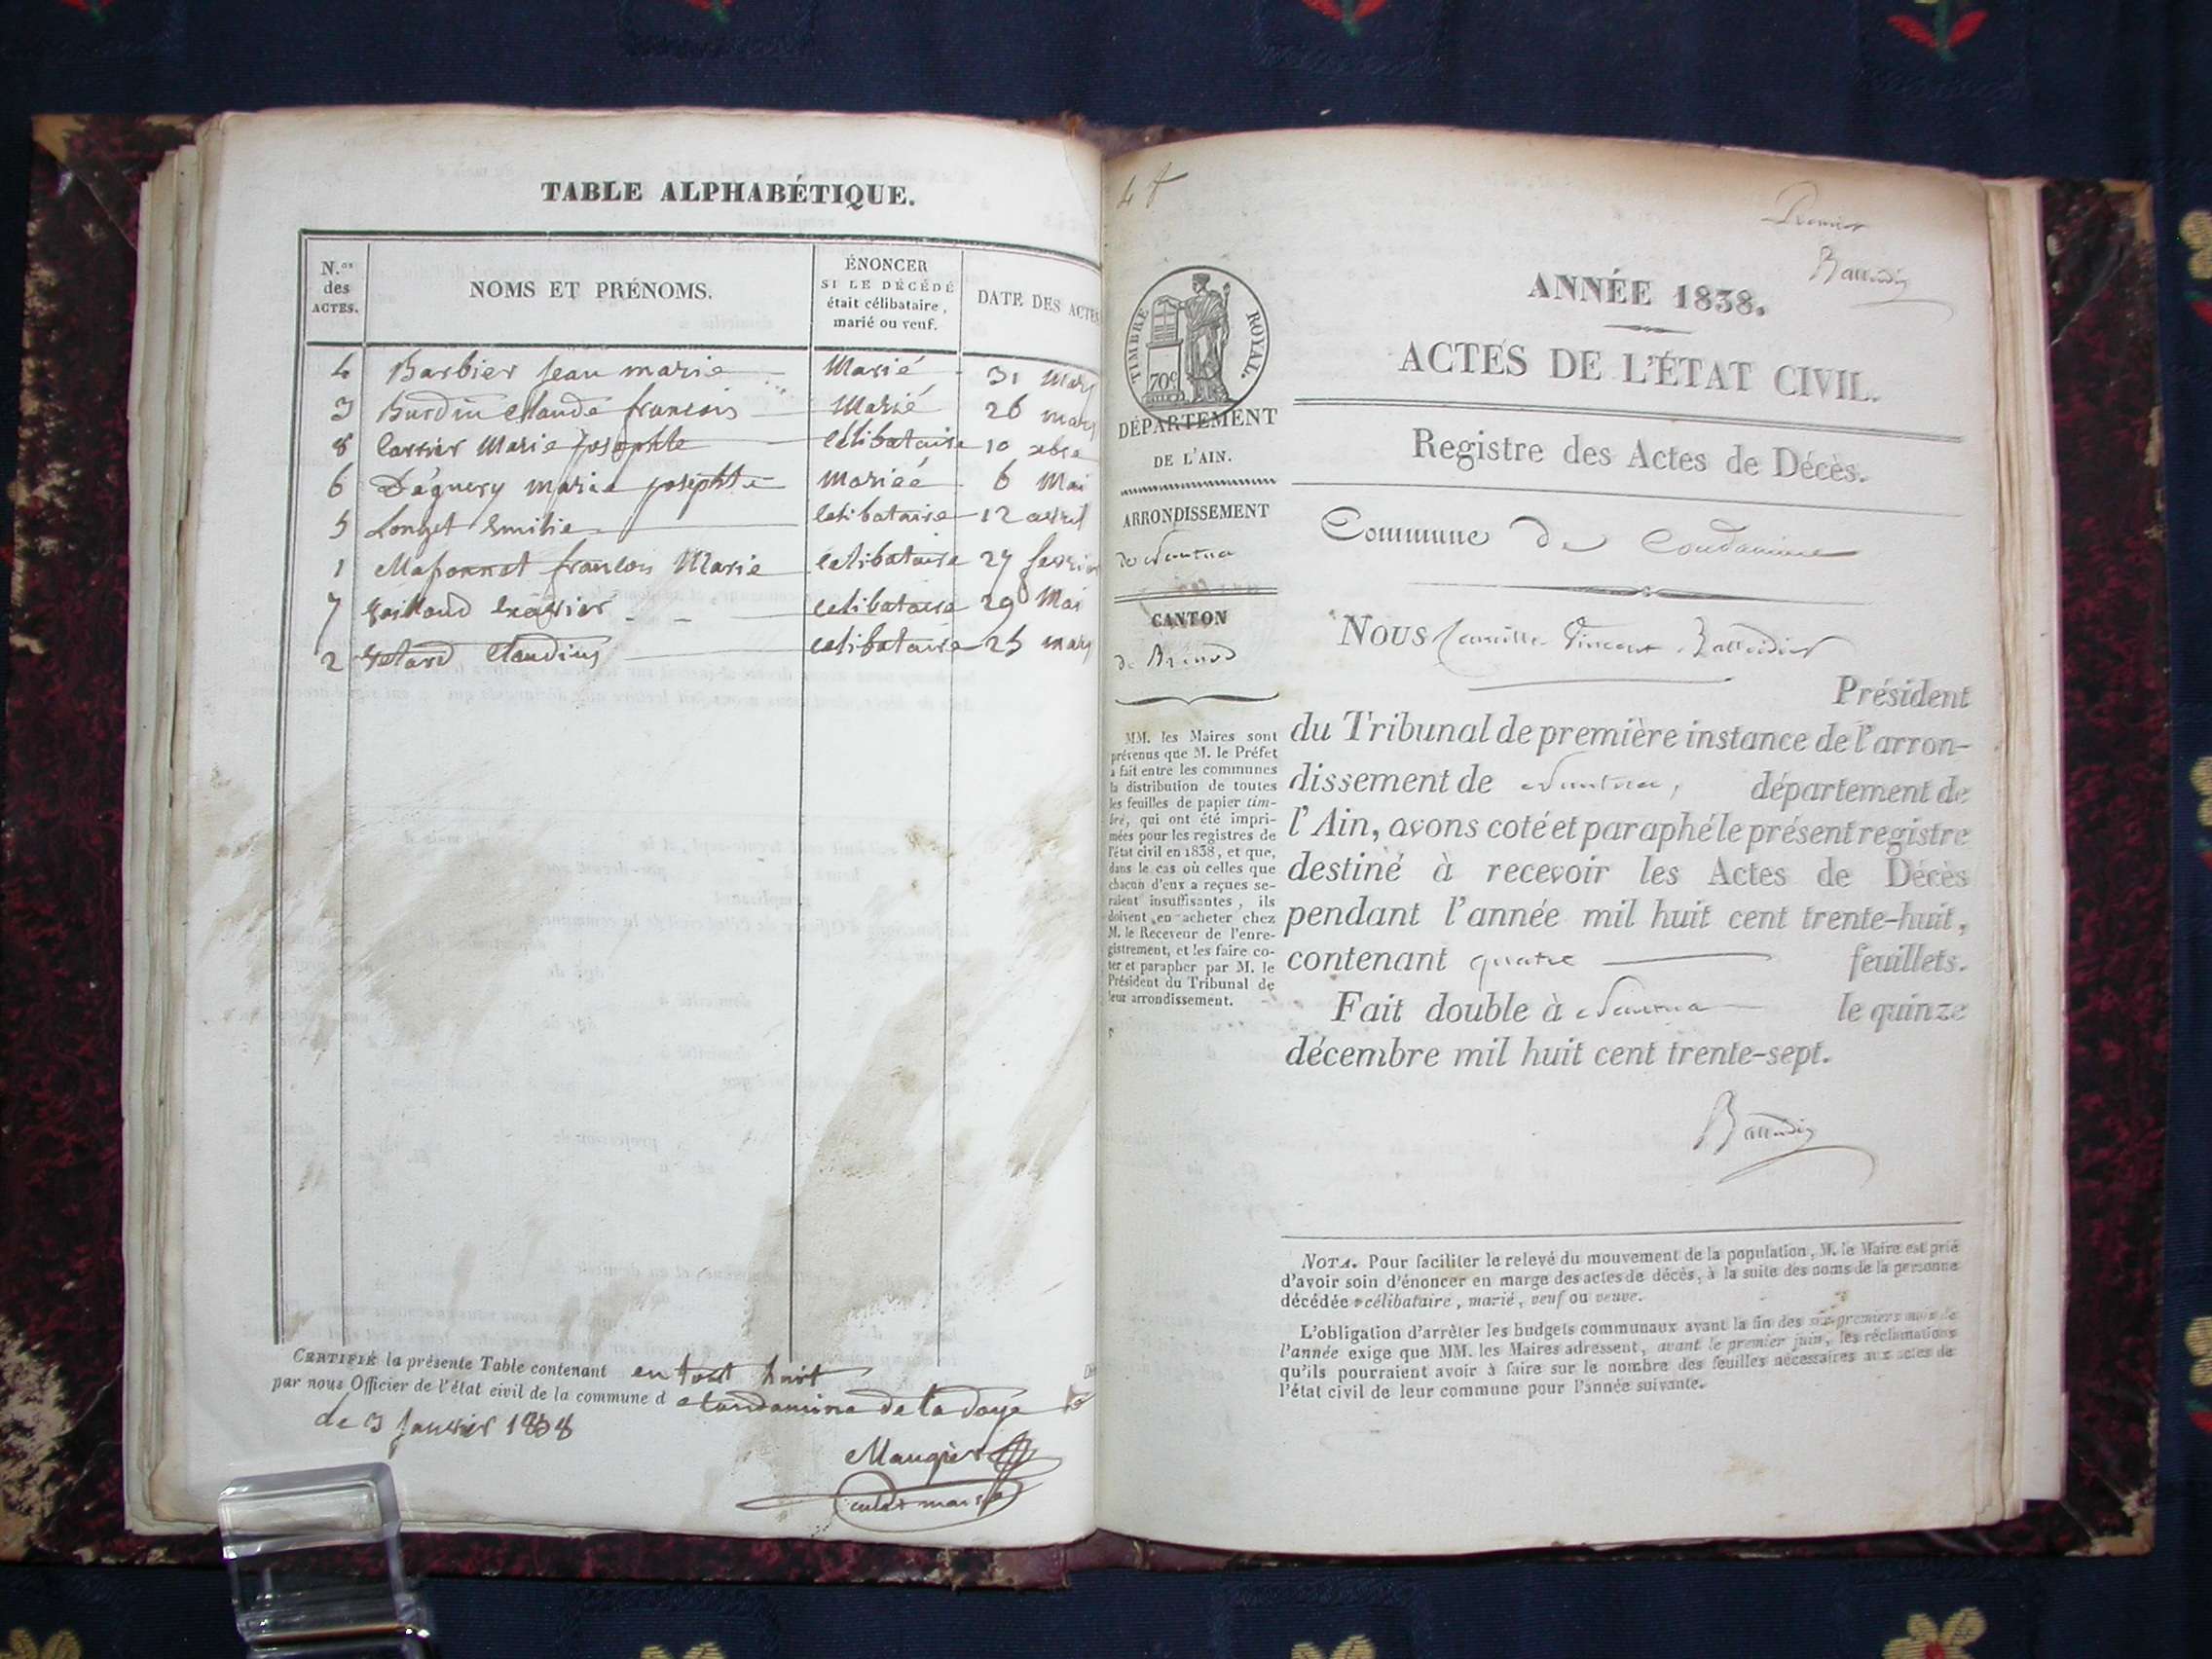 TABLE ALPHABÉTIQUE.
N.os des ACTES.
NOMS ET PRÉNOMS.
ÉNONCER SI LE DÉCÉDÉ était célibataire, marié ou veuf.
DATE DES ACTES
4 Barbier Jean marie Marié 31 Mars
3 Burdin Claude françois Marié 26 mars
8 Carrier Marie josephte célibataire 10 xbre
6 Déguery marie josephte mariée 6 Mai
5 Longet Emilie célibataire 12 avril
1 Massonnat françois Marie célibataire 27 fevrier
7 célibataire 29 Mai
2 Claudius célibataire 25 mars
CERTIFIÉ la présente Table contenant en tout huit
par nous Officier de l'état civil de la commune d Condamine de la doye
le 3 Janvier 1838
Maugier
maire
4 f
Premier
TIMBRE ROYAL.
70c
DÉPARTEMENT
DE L'AIN.
ARRONDISSEMENT
de Nantua
CANTON
de Brenod
MM. les Maires sont
prévenus que M. le Préfet
a fait entre les communes
la distribution de toutes
les feuilles de papier tim-
bré, qui ont été impri-
mées pour les registres de
l'état civil en 1838, et que,
dans le cas où celles que
chacun d'eux a reçues se-
raient insuffisantes, ils
doivent en acheter chez
M. le Receveur de l'enre-
gistrement, et les faire co-
ter et parapher par M. le
Président du Tribunal de
leur arrondissement.
ANNÉE 1838.
ACTES DE L'ÉTAT CIVIL.
Registre des Actes de Décès.
Commune de Condamine
NOUS Camille Vincent
Président
du Tribunal de première instance de l'arron-
dissement de Nantua, département de
l'Ain, avons coté et paraphé le présent registre
destiné à recevoir les Actes de Décès
pendant l'année mil huit cent trente-huit,
contenant quatre feuillets.
Fait double à Nantua le quinze
décembre mil huit cent trente-sept.
NOTA. Pour faciliter le relevé du mouvement de la population, M. le Maire est prié
d'avoir soin d'énoncer en marge des actes de décès, à la suite des noms de la personne
décédée : célibataire, marié, veuf ou veuve.
L'obligation d'arrêter les budgets communaux avant la fin des six premiers mois de
l'année exige que MM. les Maires adressent, avant le premier juin, les réclamations
qu'ils pourraient avoir à faire sur le nombre des feuilles nécessaires aux actes de
l'état civil de leur commune pour l'année suivante.